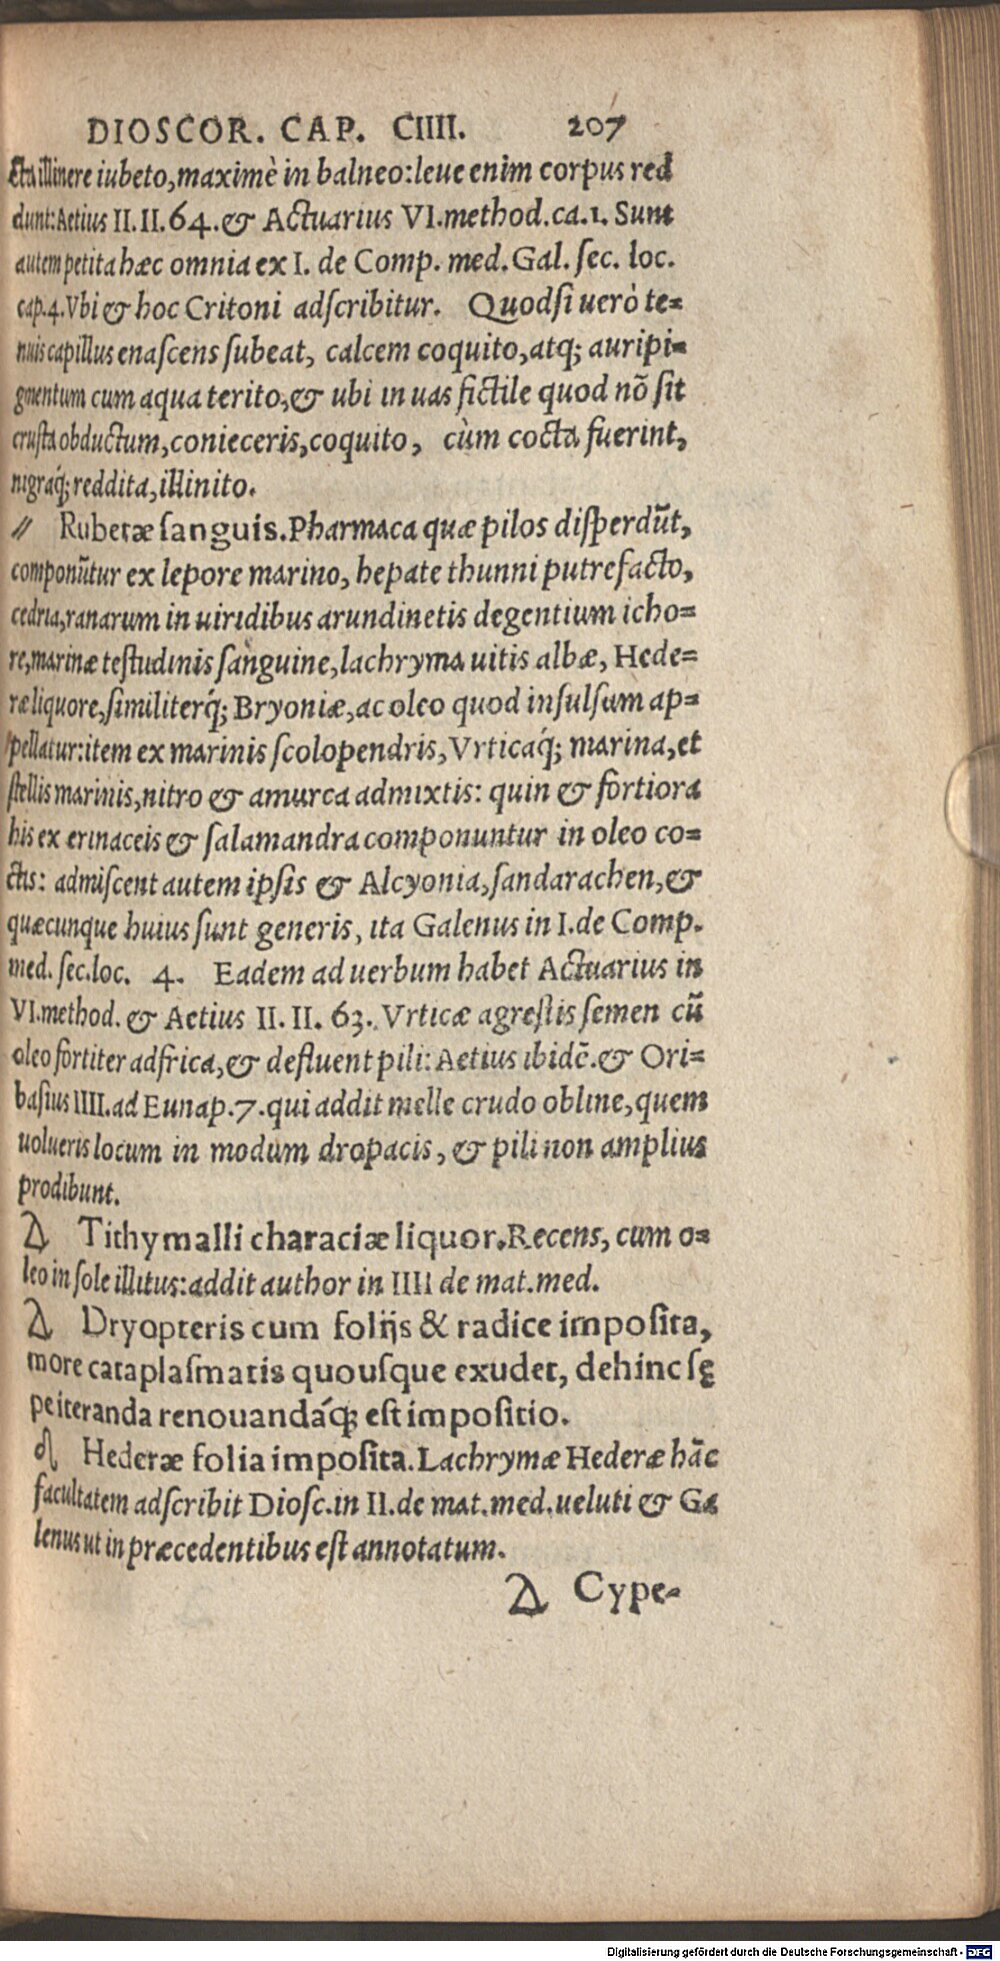 DIOSCOR. CAP. CIIII. 207
illinere iubeto, maximè in balneo: leue enim corpus red
dunt: Aetius II. II. 64. & Actuarius VI. method. ca. 1. Sunt
autem petita hæc omnia ex I. de Comp. med. Gal. sec. loc.
cap. 4. Vbi & hoc Critoni adscribitur. Quodsi uerò te-
nuis capillus enascens subeat, calcem coquito, atq; auripi-
gmentum cum aqua terito, & ubi in uas fictile quod nõ sit
crusta obductum, conieceris, coquito, cùm cocta fuerint,
nigraq́; reddita, illinito.
// Rubetæ sanguis. Pharmaca quæ pilos disperdũt,
componũtur ex lepore marino, hepate thunni putrefacto,
cedria, ranarum in uiridibus arundinetis degentium icho-
re, marinæ testudinis sanguine, lachryma uitis albæ, Hede-
ræ liquore, similiterq́; Bryoniæ, ac oleo quod insulsum ap-
pellatur: item ex marinis scolopendris, Vrticaq́; marina, et
stellis marinis, nitro & amurca admixtis: quin & fortiora
his ex erinaceis & salamandra componuntur in oleo co-
ctis: admiscent autem ipsis & Alcyonia, sandarachen, &
quæcunque huius sunt generis, ita Galenus in I. de Comp.
med. sec. loc. 4. Eadem ad uerbum habet Actuarius in
VI. method. & Aetius II. II. 63. Vrticæ agrestis semen cũ
oleo fortiter adfrica, & defluent pili: Aetius ibidẽ. & Ori-
basius IIII. ad Eunap. 7. qui addit melle crudo obline, quem
uolueris locum in modum dropacis, & pili non amplius
prodibunt.
Δ Tithymalli characiæ liquor. Recens, cum o-
leo in sole illitus: addit author in IIII de mat. med.
Δ Dryopteris cum folijs & radice imposita,
more cataplasmatis quousque exudet, dehinc sę
pe iteranda renouandáq; est impositio.
Hederæ folia imposita. Lachrymæ Hederæ hãc
facultatem adscribit Diosc. in II. de mat. med. ueluti & Ga
lenus ut in præcedentibus est annotatum.
Δ Cype-
Digitalisierung gefördert durch die Deutsche Forschungsgemeinschaft - DFG